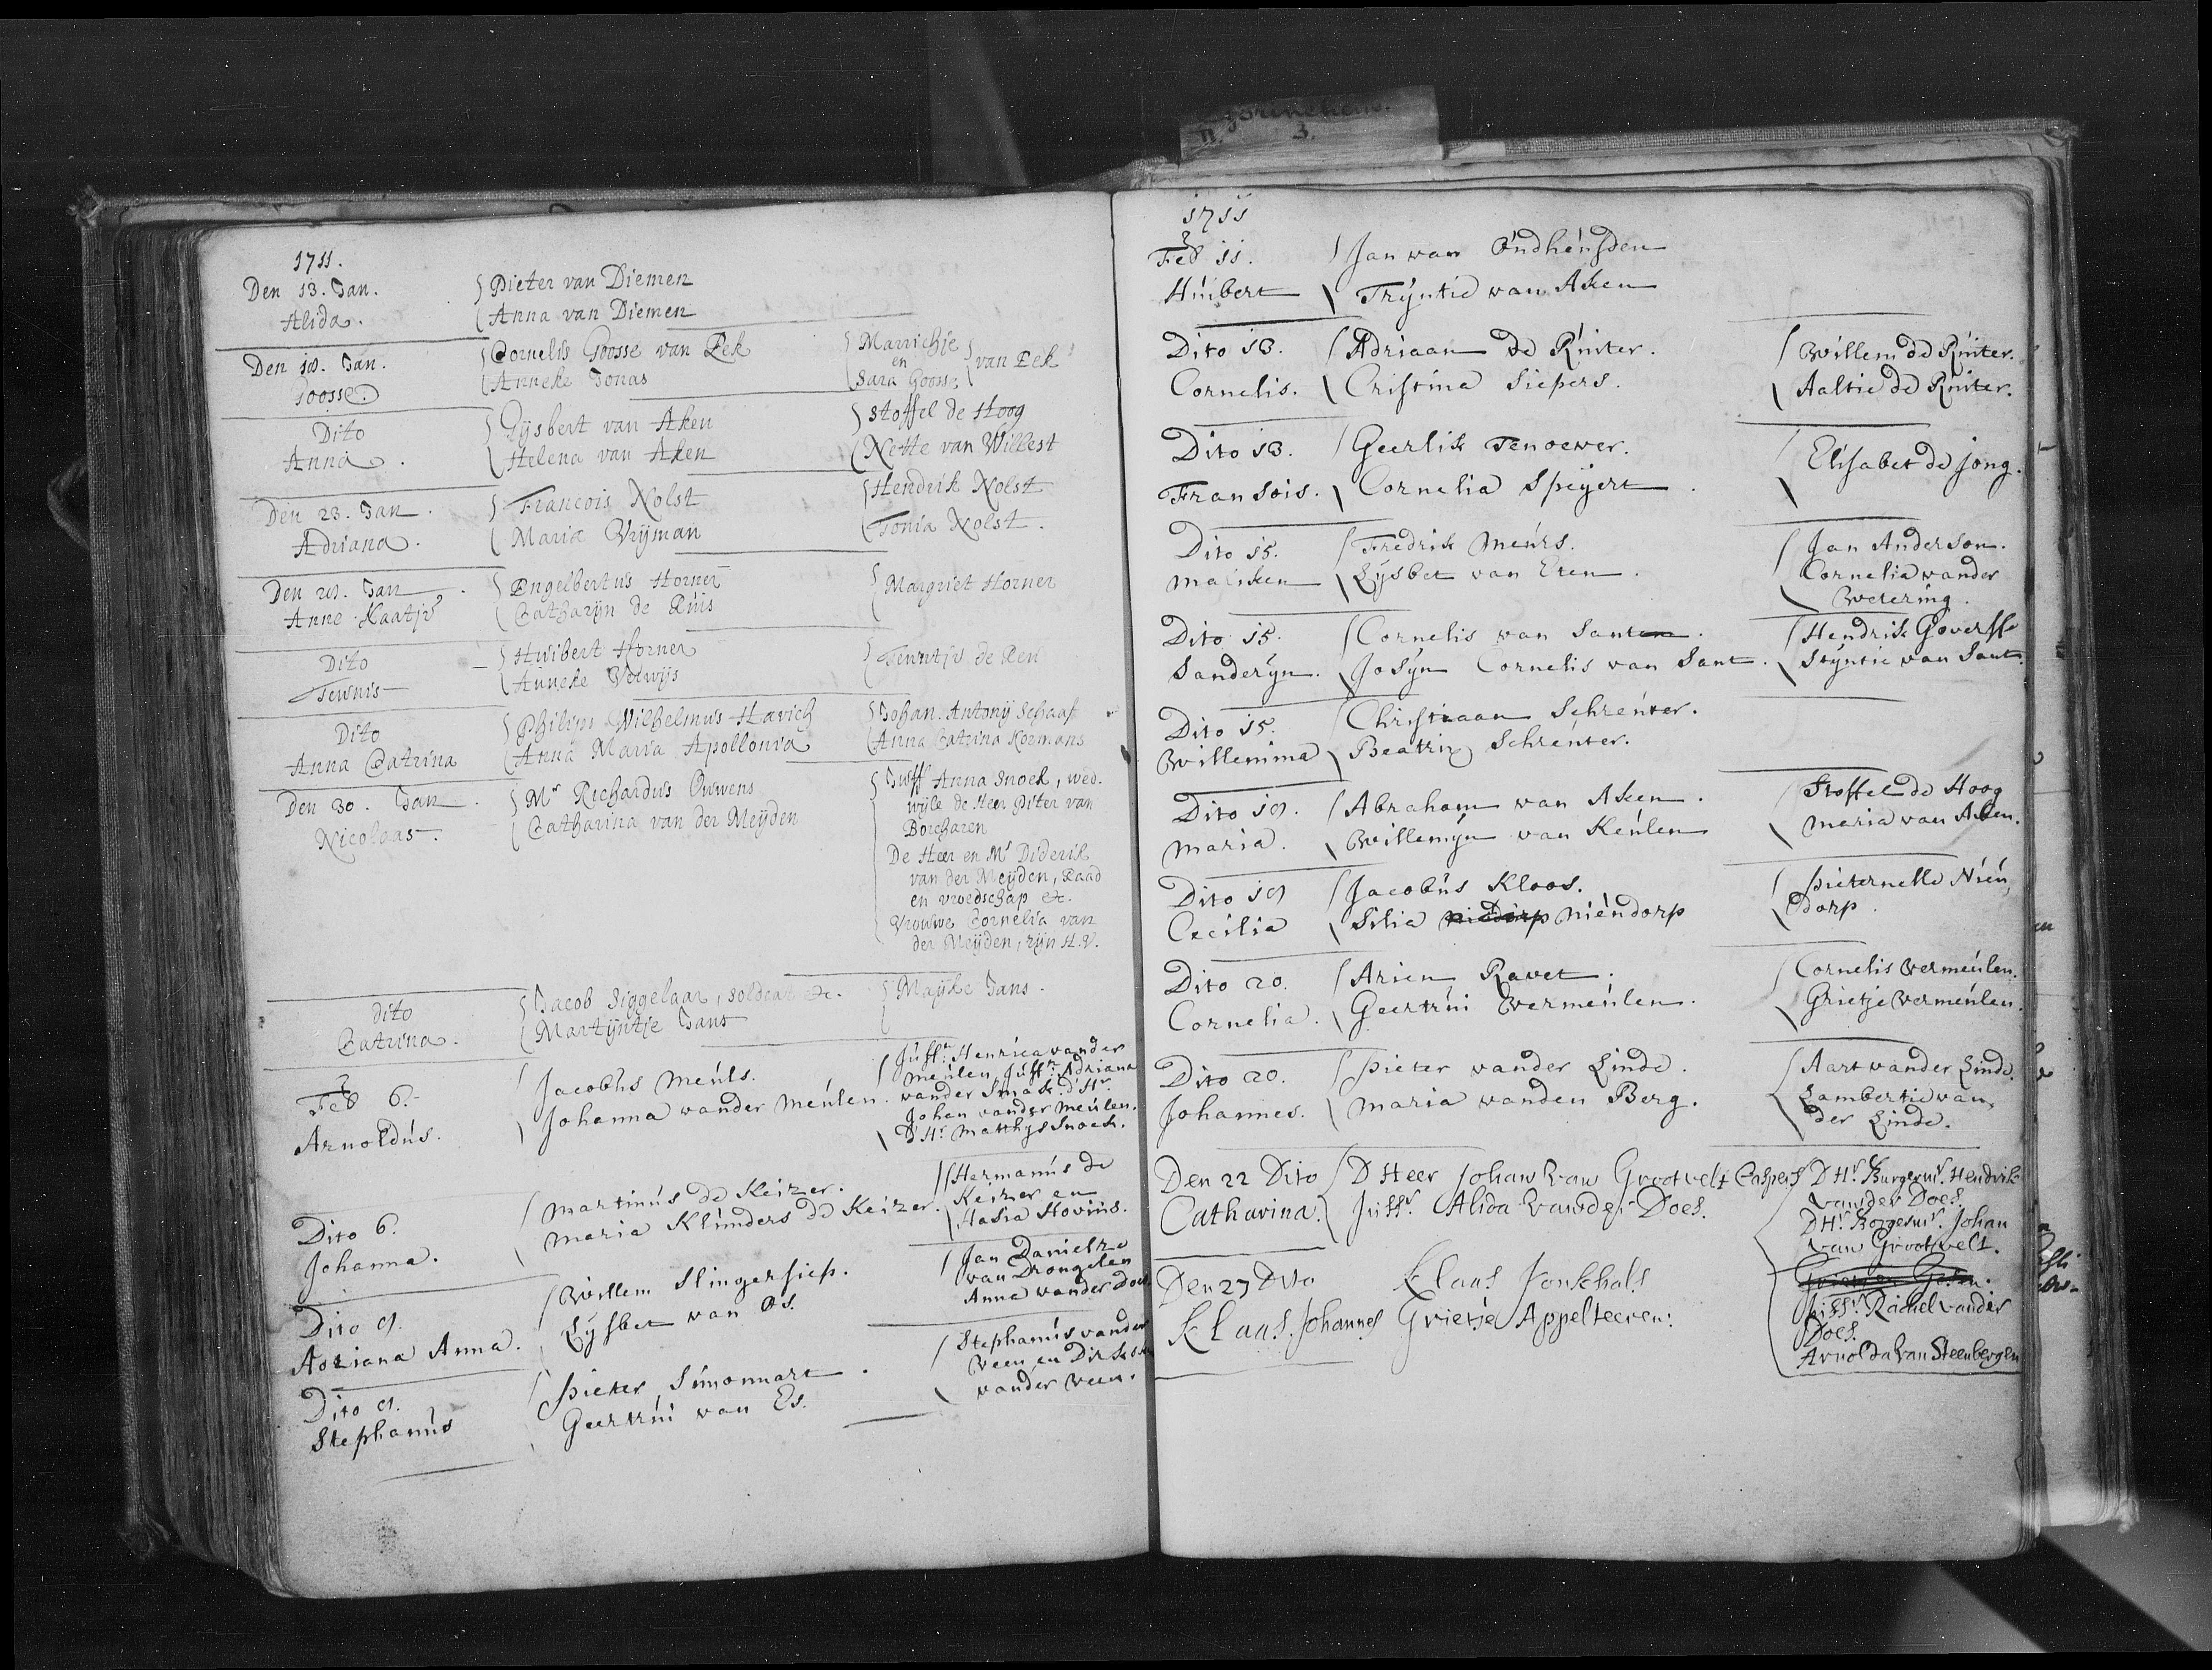 Gorinchem.
II 3.
1711.
Den 13. Jan. Pieter van Diemen
Alida. Anna van Diemen
Den 18. Jan. Cornelis Goosse van Eek Marrichje en Sara Goosse van Eek
Goosse. Anneke Jonas
Dito Gijsbert van Aken Stoffel de Hoog
Anna. Helena van Aken Nette van Willest
Den 23. Jan. Francois Nolst Hendrik Nolst
Adriana. Maria Vrijman Tonia Nolst.
Den 29. Jan. Engelbertus Horner Margriet Horner
Anne Kaatje Catharijn de Ruis
Dito Huibert Horner Teuntje de Ren
Teunis Anneke Volwijs
Dito Philips Wilhelmus Havich Johan. Antonij Schaaf
Anna Catrina Anna Maria Apollonia Anna Catrina Kormans
Den 30. Jan. Mr Richardus Ouwens Juff Anna Snoek, wed.
Nicolaas. Catharina van der Meijden wijle de Heer Piter van
Borcharen
De Heer en Mr Diderik
van der Meijden, Raad
en vroedschap &c.
Vrouwe Cornelia van
der Meijden, zijn H.V.
dito Jacob Siggelaar, soldaat &c. Maijke Jans.
Catrina. Martijntje Jans
Feb 6. Jacobus Meuls. Juffr. Henrica vander
Arnoldus. Johanna vander Meulen. Meulen, Juffr. Adriana
vander Smak. d'Hr.
Johan vander Meulen.
D'Hr Matthijs Snoek.
Dito 6. Martinus de Keizer. Hermanus de
Johanna. Maria Klunders de Keizer. Keizer en
Hasia Hovius.
Dito 9. Willem Slingersiep. Jan Danielze
Adriana Anna. Lijsbet van Os. van Drongelen
Anna vander Does
Dito 9. Pieter Simonnart. Stephanus vander
Stephanus Geertrui van Es. Veen en Dirkske
vander Veen.
1711
Feb 11. Jan van Oudheusden
Huibert Trijntie van Aken
Dito 13. Adriaan de Ruiter. Willem de Ruiter.
Cornelis. Cristina Siepers. Aaltie de Ruiter.
Dito 13. Geerlik Tenoever. Elisabet de Jong.
Fransois. Cornelia Speijert
Dito 15. Fredrik Meurs. Jan Anderson.
Maliken Lijsbet van Eten. Cornelia vander
Wetering.
Dito 15. Cornelis van Santen. Hendrik Goversse
Sanderijn. Josijn Cornelis van Sant. Stijntie van Sant.
Dito 15. Christiaan Schreuter.
Willemina Beatrix Schreuter.
Dito 19. Abraham van Aken. Stoffel de Hoog
Maria. Willemijn van Keulen Maria van Aken.
Dito 19 Jacobus Kloos. Pieternelle Nieu,
Cecilia Silia Niedorp Nieudorp dorp.
Dito 20. Arien Ravet. Cornelis Vermeulen.
Cornelia. Geertrui Vermeulen. Grietje Vermeulen.
Dito 20. Pieter vander Linde. Aart vander Linde.
Johannes. Maria vanden Berg. Lambertie van
der Linde.
Den 22 Dito D Heer Johan van Grootvelt Caspers D Hr. Burgermr. Hendrik
Catharina. Juffr. Alida vander Does. vander Does.
D Hr. Borgesmr. Johan
van Grootvelt.
Juffr. Rachel vander
Does.
Arnolda van Steenbergen
Den 27 Dito Klaas Jonkhals
Klaas. Johannes Grietje Appelteeren.